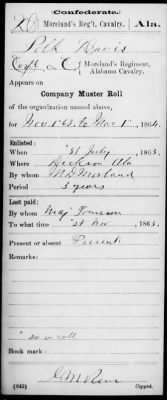 (Confederate.)
20 Moreland's Reg't, Cavalry. Ala.
Polk Davis
Capt, Co. C, Moreland's Regiment,
Alabama Cavalry.
Appears on
Company Muster Roll
of the organization named above,
for Nov 1 63 to Mar 1, 1864.
Enlisted:
When 31 July, 1863.
Where Dickson Ala
By whom M D Moreland
Period 3 years
Last paid:
By whom Maj
To what time 31 Nov, 1863.
Present or absent Present
Remarks:
" so on roll
Book mark:
(642) Copyist.